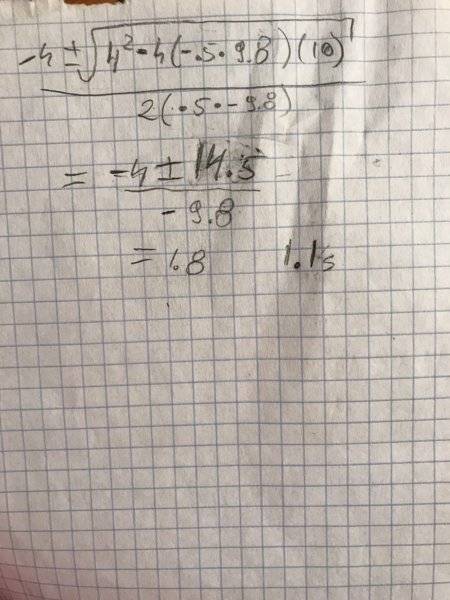 -4 ± √4² - 4(-.5 · 9.8)(10)
2(.5 · -9.8)
= -4 ± 14.5
-9.8
= 1.8 1.1s